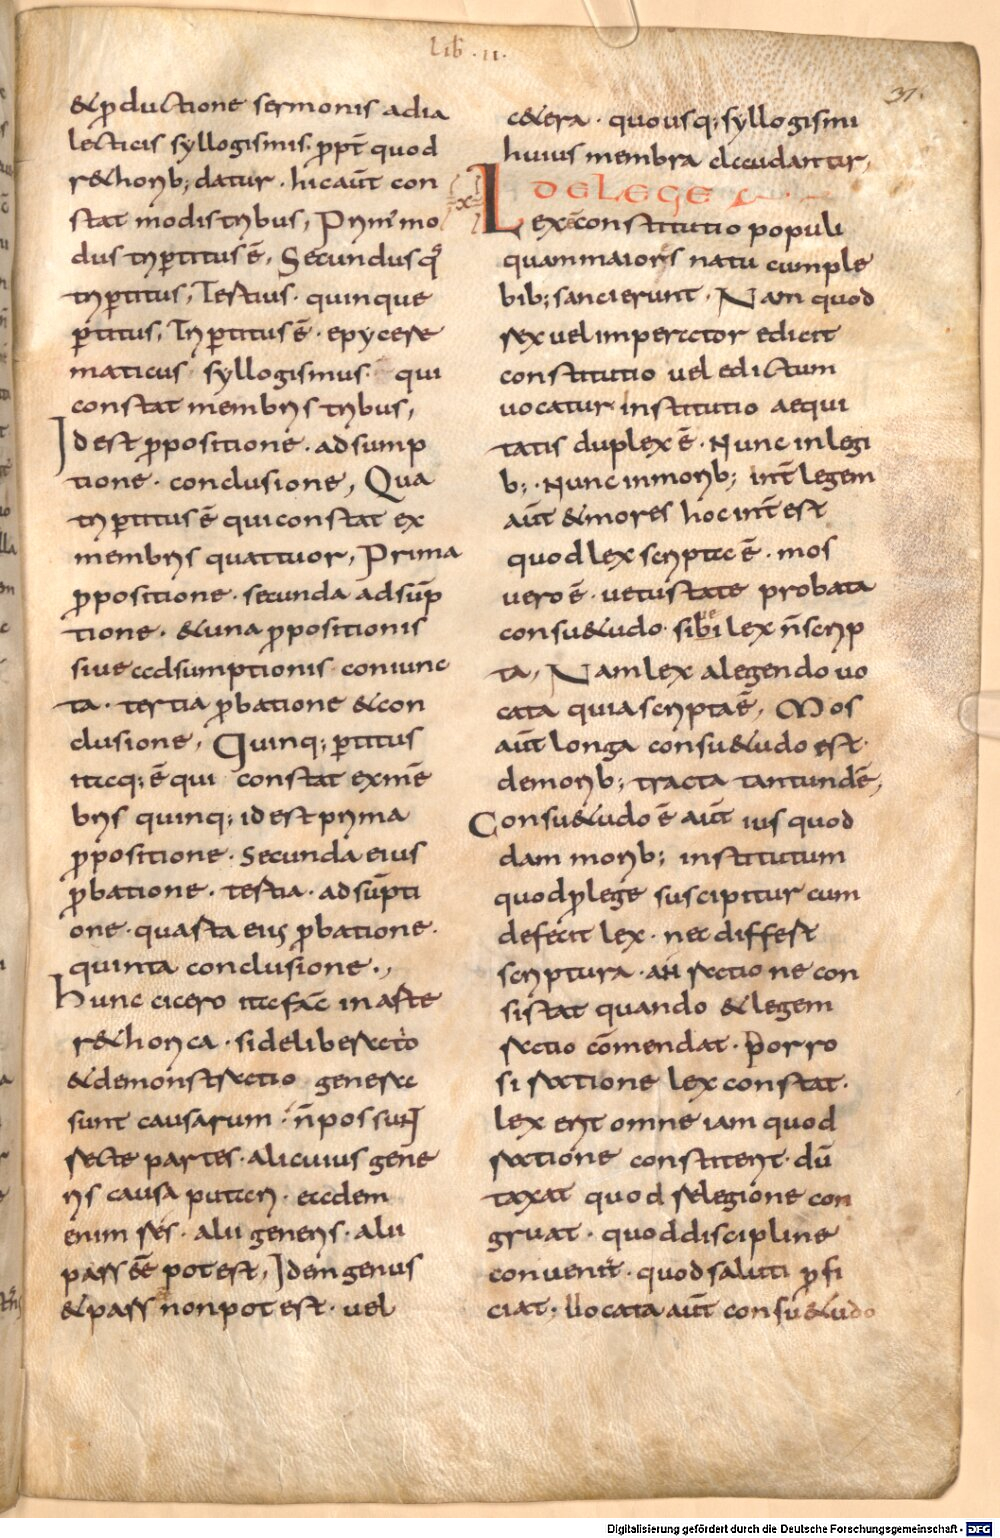 Lib · II ·
37·
& ꝓductione sermonis adia
lecticis syllogismis. ꝓpt̄ quod
r&horib; datur · hic aūt con
stat modis tribus, Prim' mo
dus trip̱titus ē, Secundus q͛
trip̱titus, Tertius · quinque
p̱titus, Trip̱titus ē · epycere
maticus syllogismus qui
constat membris tribus,
Id est ꝓpositione · adsump
tione · conclusione, Qua
trip̱titus ē qui constat ex
membris quattuor, Prima
ꝓpositione · secunda adsūp
tione · & una ꝓpositionis
sive adsumptionis coniunc
ta · tertia ꝓbatione & con
clusione, Quinq; p̱titus
itaq; ē qui constat ex mē
bris quinq; id est prima
ꝓpositione · Secunda eius
ꝓbatione · tertia · adsūpti
one · quarta eius ꝓbatione ·
quinta conclusione ·,
hunc cicero ita fac̄ in arte
r&horica · si deliberatio
& demonstratio genera
sunt causarum · n̄ possunt
recte partes · alicuius gene
ris causa putari · eadem
enim res · alii generis · alii
pars eē potest, Idem genus
& pars non potest · vel
c&era · quousq; syllogismi
huius membra claudantur,
X
DE LEGE
Lex ē constitutio populi
quam maiores natu cum ple
bib; sancierunt · Nam quod
rex vel imperator edicit
constitutio vel edictum
vocatur institutio aequi
tatis duplex ē · Nunc in legi
b; · Nunc in morib; int̄ legem
aūt & mores hoc int̄est
quod lex scripta ē · mos
vero ē · vetustate probata
consu&udo · sive lex n̄ scrip
ta, Nam lex a legendo vo
cata quia scripta ē, Mos
aūt longa consu&udo est ·
de morib; tracta tantundē,
Consu&udo ē aūt ius quod
dam morib; institutum
quod ꝓ lege suscipitur cum
deficit lex · nec differt
scriptura · an ratione con
sistat quando & legem
ratio cōmendat · Porro
si ratione lex constat ·
lex erit omne iam quod
ratione constiterit · dū
taxat quod religione con
gruat · quod discipline
conveniat · quod saluti ꝓfi
ciat · Vocata aūt consu&udo
Digitalisierung gefördert durch die Deutsche Forschungsgemeinschaft - DFG